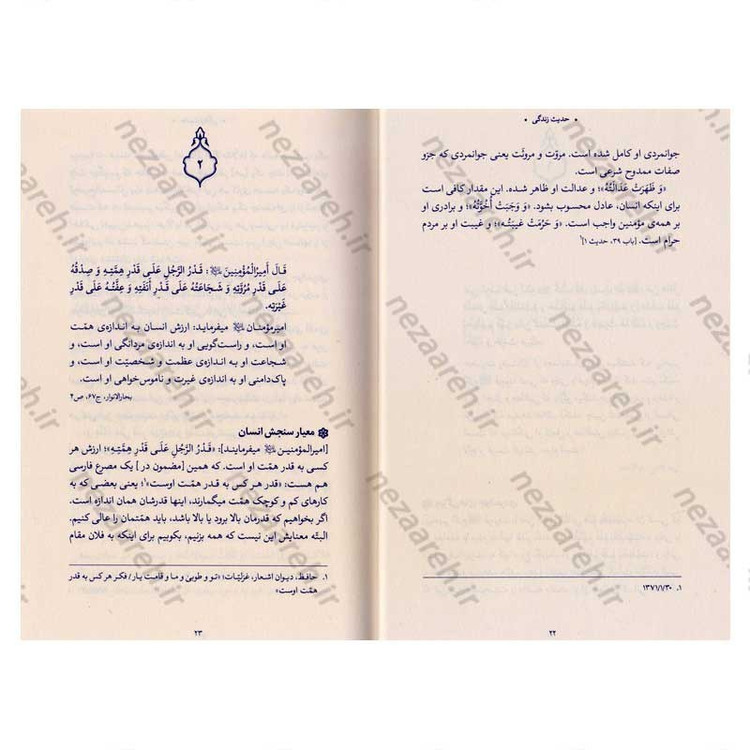 • حدیث زندگی •
جوانمردی او کامل شده است. مروّت و مروئت یعنی جوانمردی که جزو
صفات ممدوح شرعی است.
«وَ ظَهَرَت عَدالَتُهُ»؛ و عدالت او ظاهر شده. این مقدار کافی است
برای اینکه انسان، عادل محسوب بشود. «وَ وَجَبَتْ أُخُوَّتُهُ»؛ و برادری او
بر همه‌ی مؤمنین واجب است. «وَ حَرُمَتْ غیبَتُه»؛ و غیبت او بر مردم
حرام است. [باب ۳۹، حدیث ۱]¹
۱. ۱۳۷۱/۱/۳۰
۲۲
۲
قالَ أَمیرُالمُؤمِنینَ ﷺ: قَدرُ الرَّجُلِ عَلَی قَدْرِ هِمَّتِهِ وَ صِدقُهُ
عَلَی قَدْرِ مُرُوَّتِهِ وَ شَجاعَتُهُ عَلَی قَدْرِ أَنَفَتِهِ وَ عِفَّتُهُ عَلَی قَدْرِ
غَیْرَتِهِ.
امیرمؤمنان میفرماید: ارزش انسان به اندازه‌ی همّت
او است، و راست‌گویی او به اندازه‌ی مردانگی او است، و
شجاعت او به اندازه‌ی عظمت و شخصیّت او است، و
پاک‌دامنی او به اندازه‌ی غیرت و ناموس‌خواهی او است.
بحارالانوار، ج۶۷، ص۴
معیار سنجش انسان
[امیرالمؤمنین میفرمایند]: «قَدْرُ الرَّجُلِ عَلَی قَدْرِ هِمَّتِهِ»؛ ارزش هر
کسی به قدر همّت او است. که همین [مضمون در] یک مصرع فارسی
هم هست: «قدر هر کس به قدر همّت اوست»¹؛ یعنی بعضی که به
کارهای کم و کوچک همّت میگمارند، اینها قدرشان همان اندازه است.
اگر بخواهیم که قدرمان بالا برود یا بالا باشد، باید همّتمان را عالی کنیم.
البتّه معنایش این نیست که همه بزنیم، بکوبیم برای اینکه به فلان مقام
۱. حافظ، دیوان اشعار، غزلیّات؛ «تو و طوبیٰ و ما و قامت یار/ فکر هر کس به قدر
همّت اوست»
۲۳
nezaareh.ir